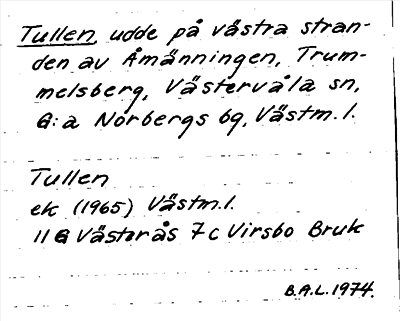 Tullen, udde på västra stran-
den av Åmänningen, Trum-
melsberg, Västervåla sn,
G:a Norbergs bg, Västm.l.
Tullen
ek (1965) Västm.l.
11G Västerås 7c Virsbo Bruk
B.A.L. 1974.